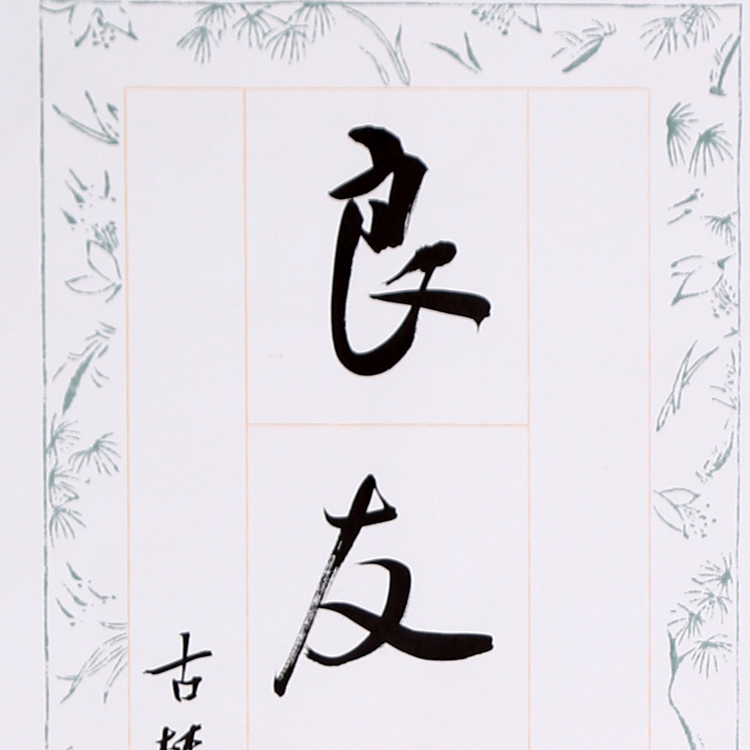 良友
古